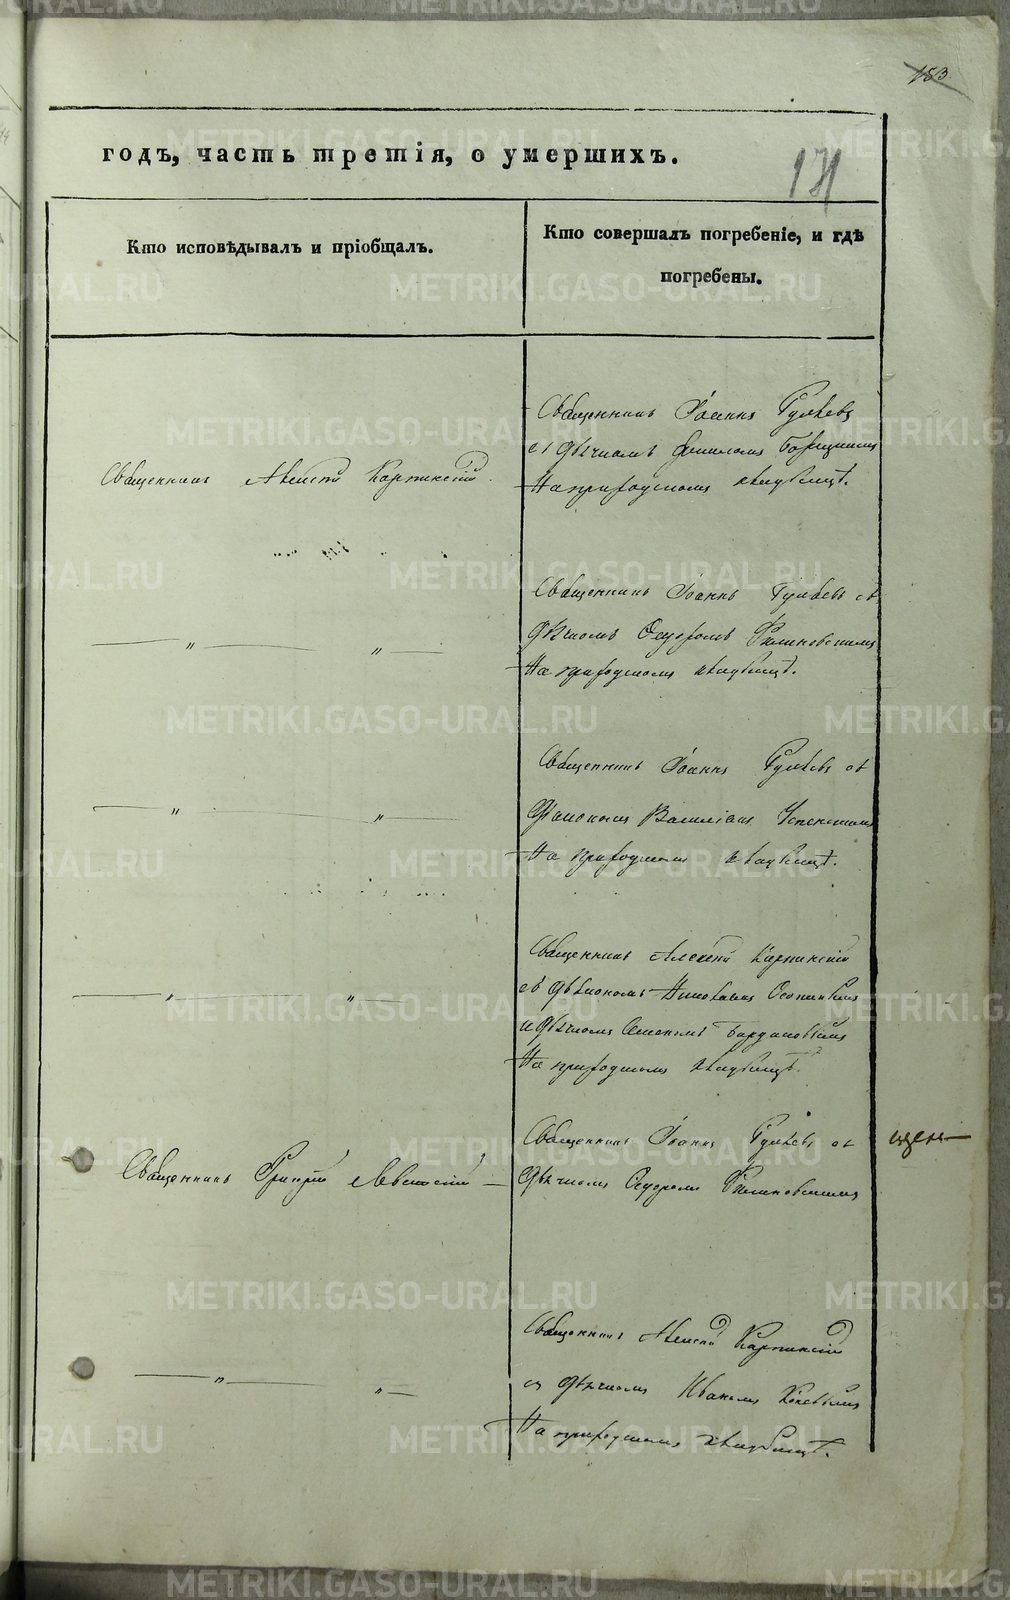 183
годъ, часть третія, о умершихъ.
171
Кто исповѣдывалъ и пріобщалъ.
Кто совершалъ погребеніе, и гдѣ
погребены.
Священникъ Алексѣй Карпинскій.
Священникъ Іоаннъ Гуляевъ
съ дьячкомъ
На приходскомъ кладбищѣ.
— „ — „ —
Священникъ Іоаннъ Гуляевъ съ
дьячкомъ Ѳедоромъ Филиновскимъ
На приходскомъ кладбищѣ.
— „ — „ —
Священникъ Іоаннъ Гуляевъ съ
діакономъ Василіемъ Успенскимъ
На приходскомъ кладбищѣ.
— „ — „ —
Священникъ Алексѣй Карпинскій
съ діакономъ Николаемъ
и дьячкомъ Семеномъ
На приходскомъ кладбищѣ.
Священникъ Григорій —
Священникъ Іоаннъ Гуляевъ съ
дьячкомъ Ѳедоромъ Филиновскимъ
— „ — „ —
Священникъ Алексѣй Карпинскій
съ дьячкомъ Иваномъ
На приходскомъ кладбищѣ.
METRIKI.GASO-URAL.RU